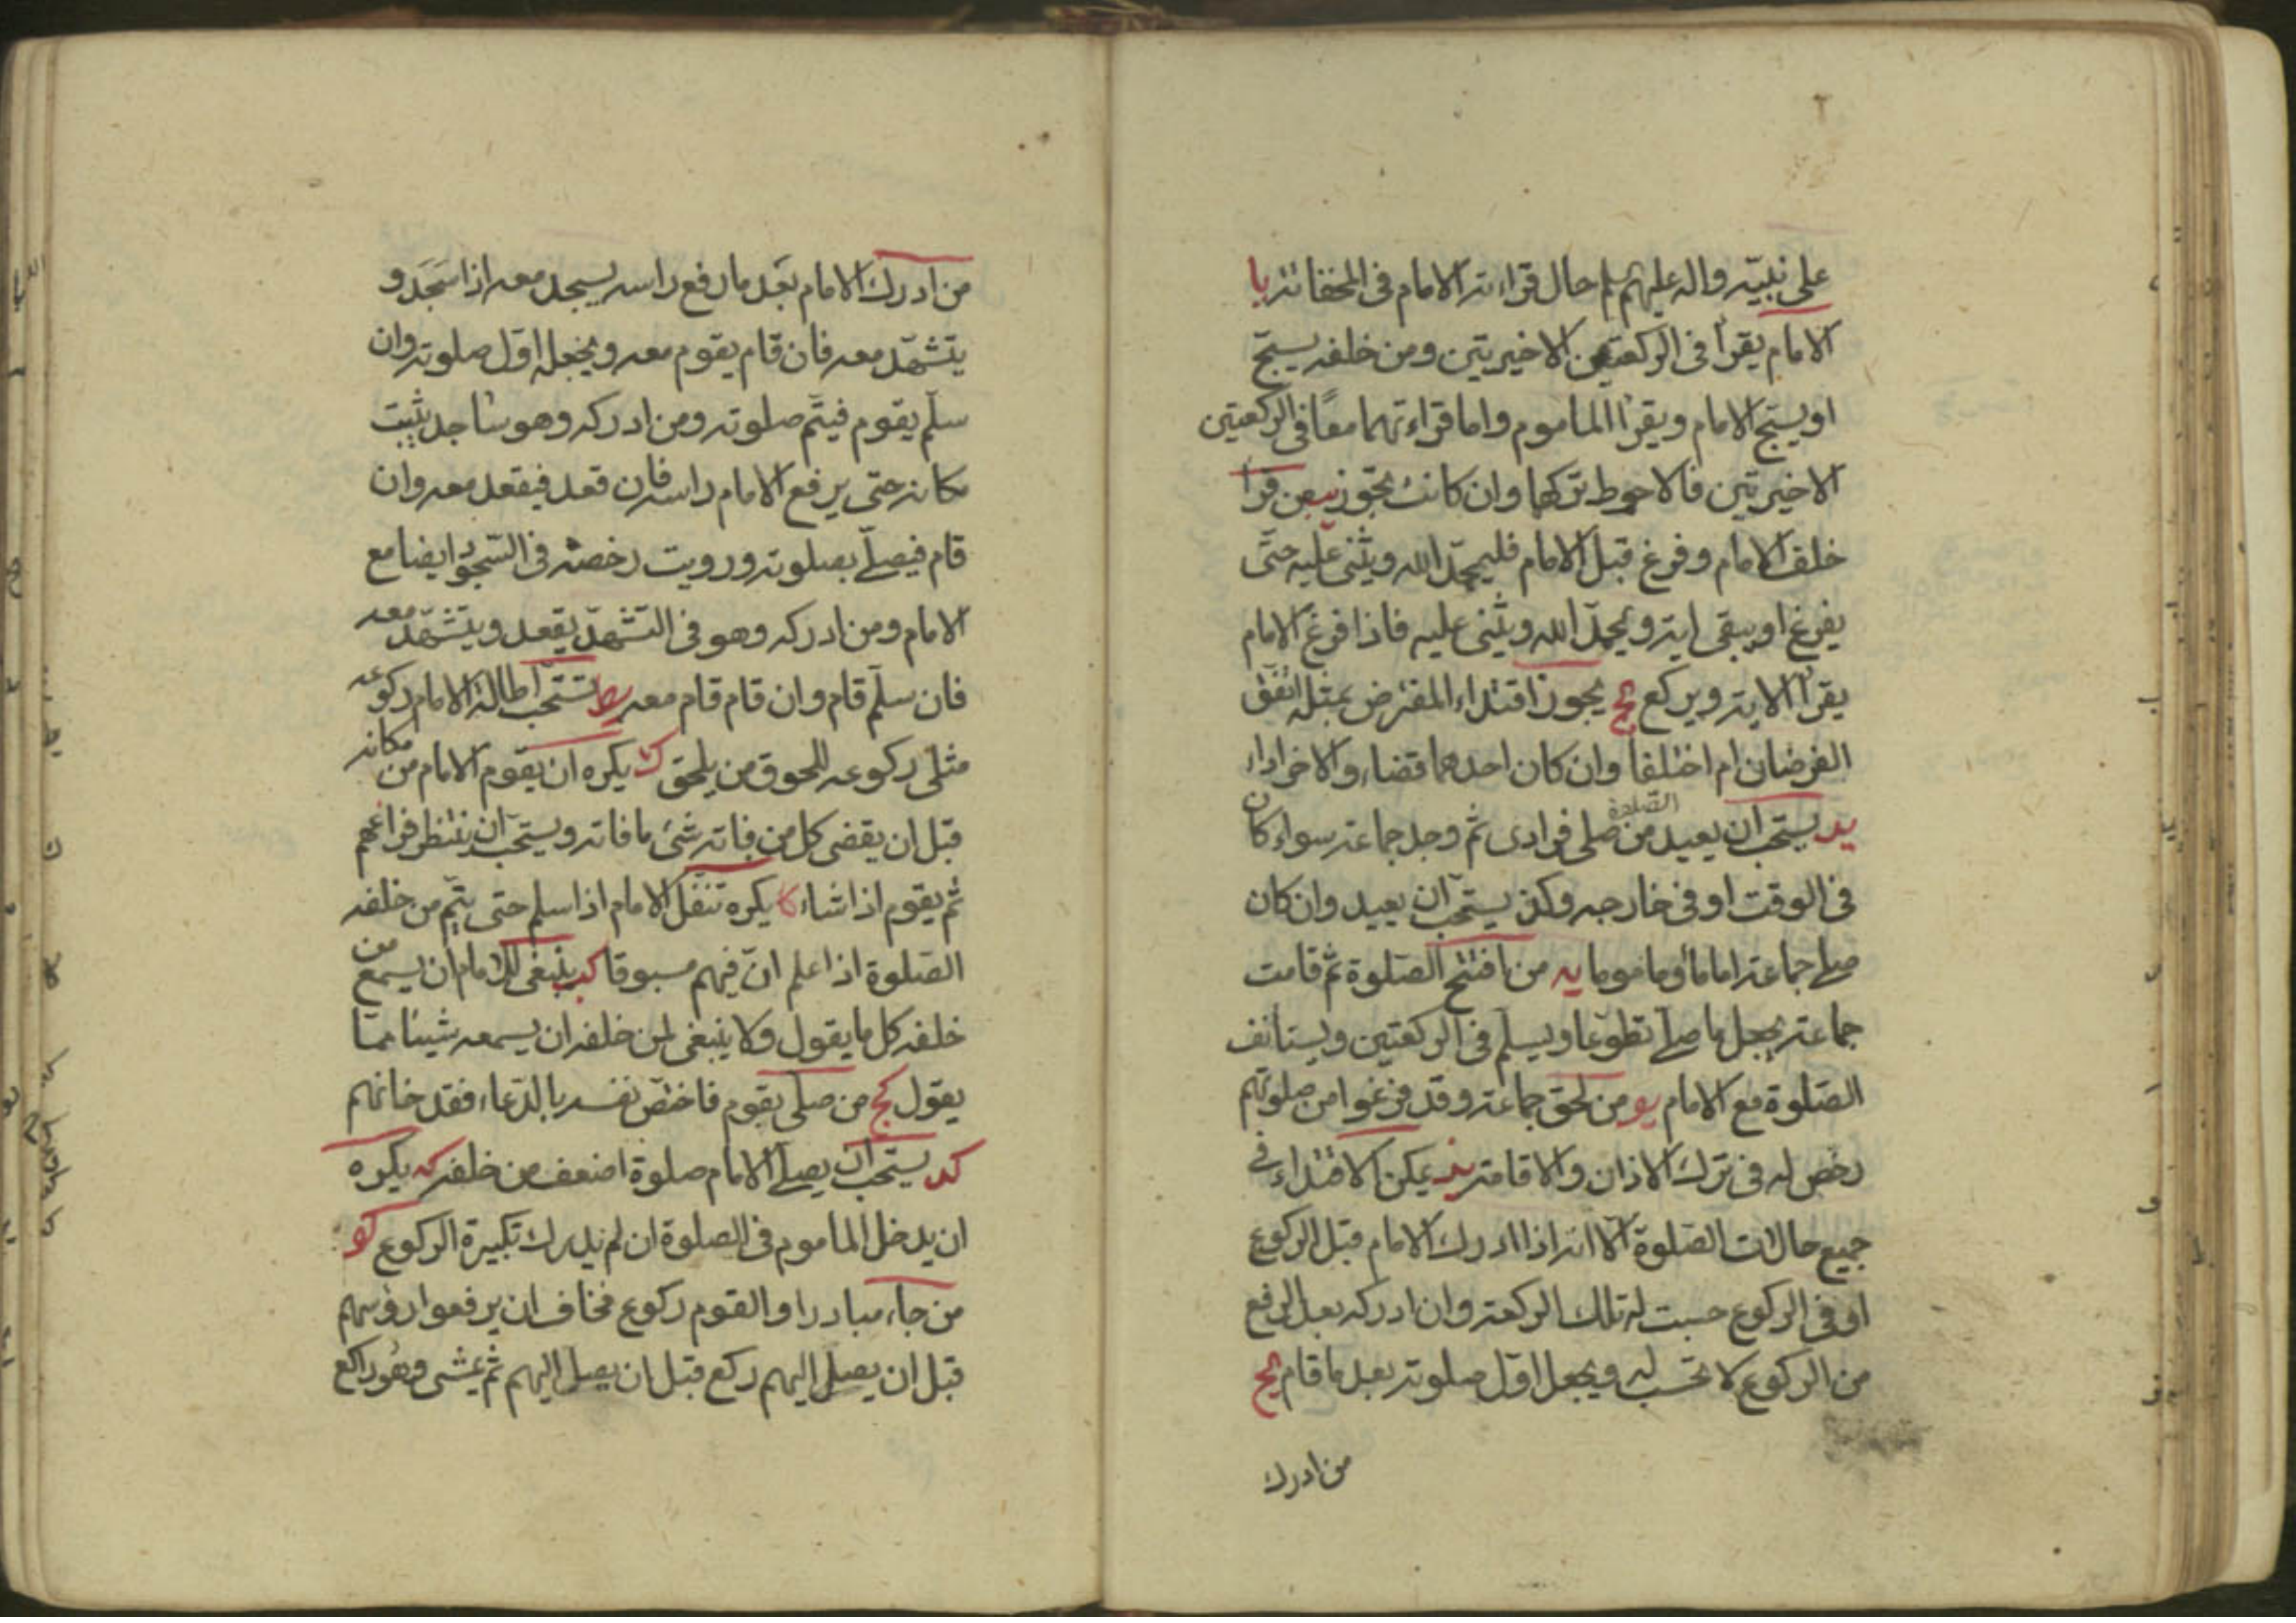 على نبيّه واله عليهم سلم حال قراءته الامام فى المخفاته يا
الامام يقرأ فى الركعتين الاخيرتين ومن خلفه يسبّح
او يسبّح الامام ويقرأ الماموم واما قراءتهما معًا فى الركعتين
الاخيرتين فالاحوط تركها وان كانت تجوز يب من قرأ
خلف الامام وفرغ قبل الامام فليمجّد الله ويثنى عليه حتّى
يفرغ او يبقى اية ويمجّد الله ويثنى عليه فاذا فرغ الامام
يقرأ الاية ويركع يج يجوز اقتداء المفترض بمثله اتفق
الفرضان ام اختلفا وان كان احدهما قضاء والاخر اداء
يد يستحب ان يعيد من صلى الصّلوة فرادى ثم وجد جماعة سواء كان
فى الوقت او فى خارجه وكذ يستحب ان يعيد وان كان
صلى جماعة اماما او ماموما يه من افتتح الصّلوة ثم قامت
جماعة يجعل ما صلى تطوّعا ويسلّم فى الركعتين ويستانف
الصّلوة مع الامام يو من لحق جماعة وقد فرغوا من صلوتهم
رخص له فى ترك الاذان والاقامة يز يمكن الاقتداء فى
جميع حالات الصّلوة الّا انه اذا ادرك الامام قبل الركوع
او فى الركوع حسبت له تلك الركعة وان ادركه بعد الرفع
من الركوع لا تحسب له ويجعل اوّل صلوته بعد ما قام يح
من ادرك
من ادرك الامام بعد ما رفع راسه يسجد معه اذا سجد و
يتشهّد معه فان قام يقوم معه ويجعله اوّل صلوته وان
سلّم يقوم فيتمّ صلوته ومن ادركه وهو ساجد يثبت
مكانه حتى يرفع الامام راسه فان قعد فيقعد معه وان
قام فيصلّى بصلوته ورويت رخصة فى السّجود ايضا مع
الامام ومن ادركه وهو فى التشهّد يقعد ويتشهّد معه
فان سلّم قام وان قام قام معه يط تستحب اطالة الامام ركوعه
مثلى ركوعه للحوق من يلحق ك يكره ان يقوم الامام من مكانه
قبل ان يقضى كل من فاته شئ ما فاته ويستحب ان ينتظر فراغهم
ثم يقوم اذا شاء كا يكره تنفّل الامام اذا سلم حتى يتمّ من خلفه
الصّلوة اذا علم انّ فيهم مسبوقا كب ينبغى للامام ان يسمع من
خلفه كل ما يقول ولا ينبغى لمن خلفه ان يسمعه شيئا ممّا
يقول كج من صلّى بقوم فاختصّ نفسه بالدّعاء فقد خانهم
كد يستحب ان يصلّى الامام صلوة اضعف من خلفه كه يكره
ان يدخل الماموم فى الصلوة ان لم يدرك تكبيرة الركوع كو
من جاء مبادرا والقوم ركوع فخاف ان يرفعوا رؤسهم
قبل ان يصل اليهم ركع قبل ان يصل اليهم ثم يمشى وهو راكع